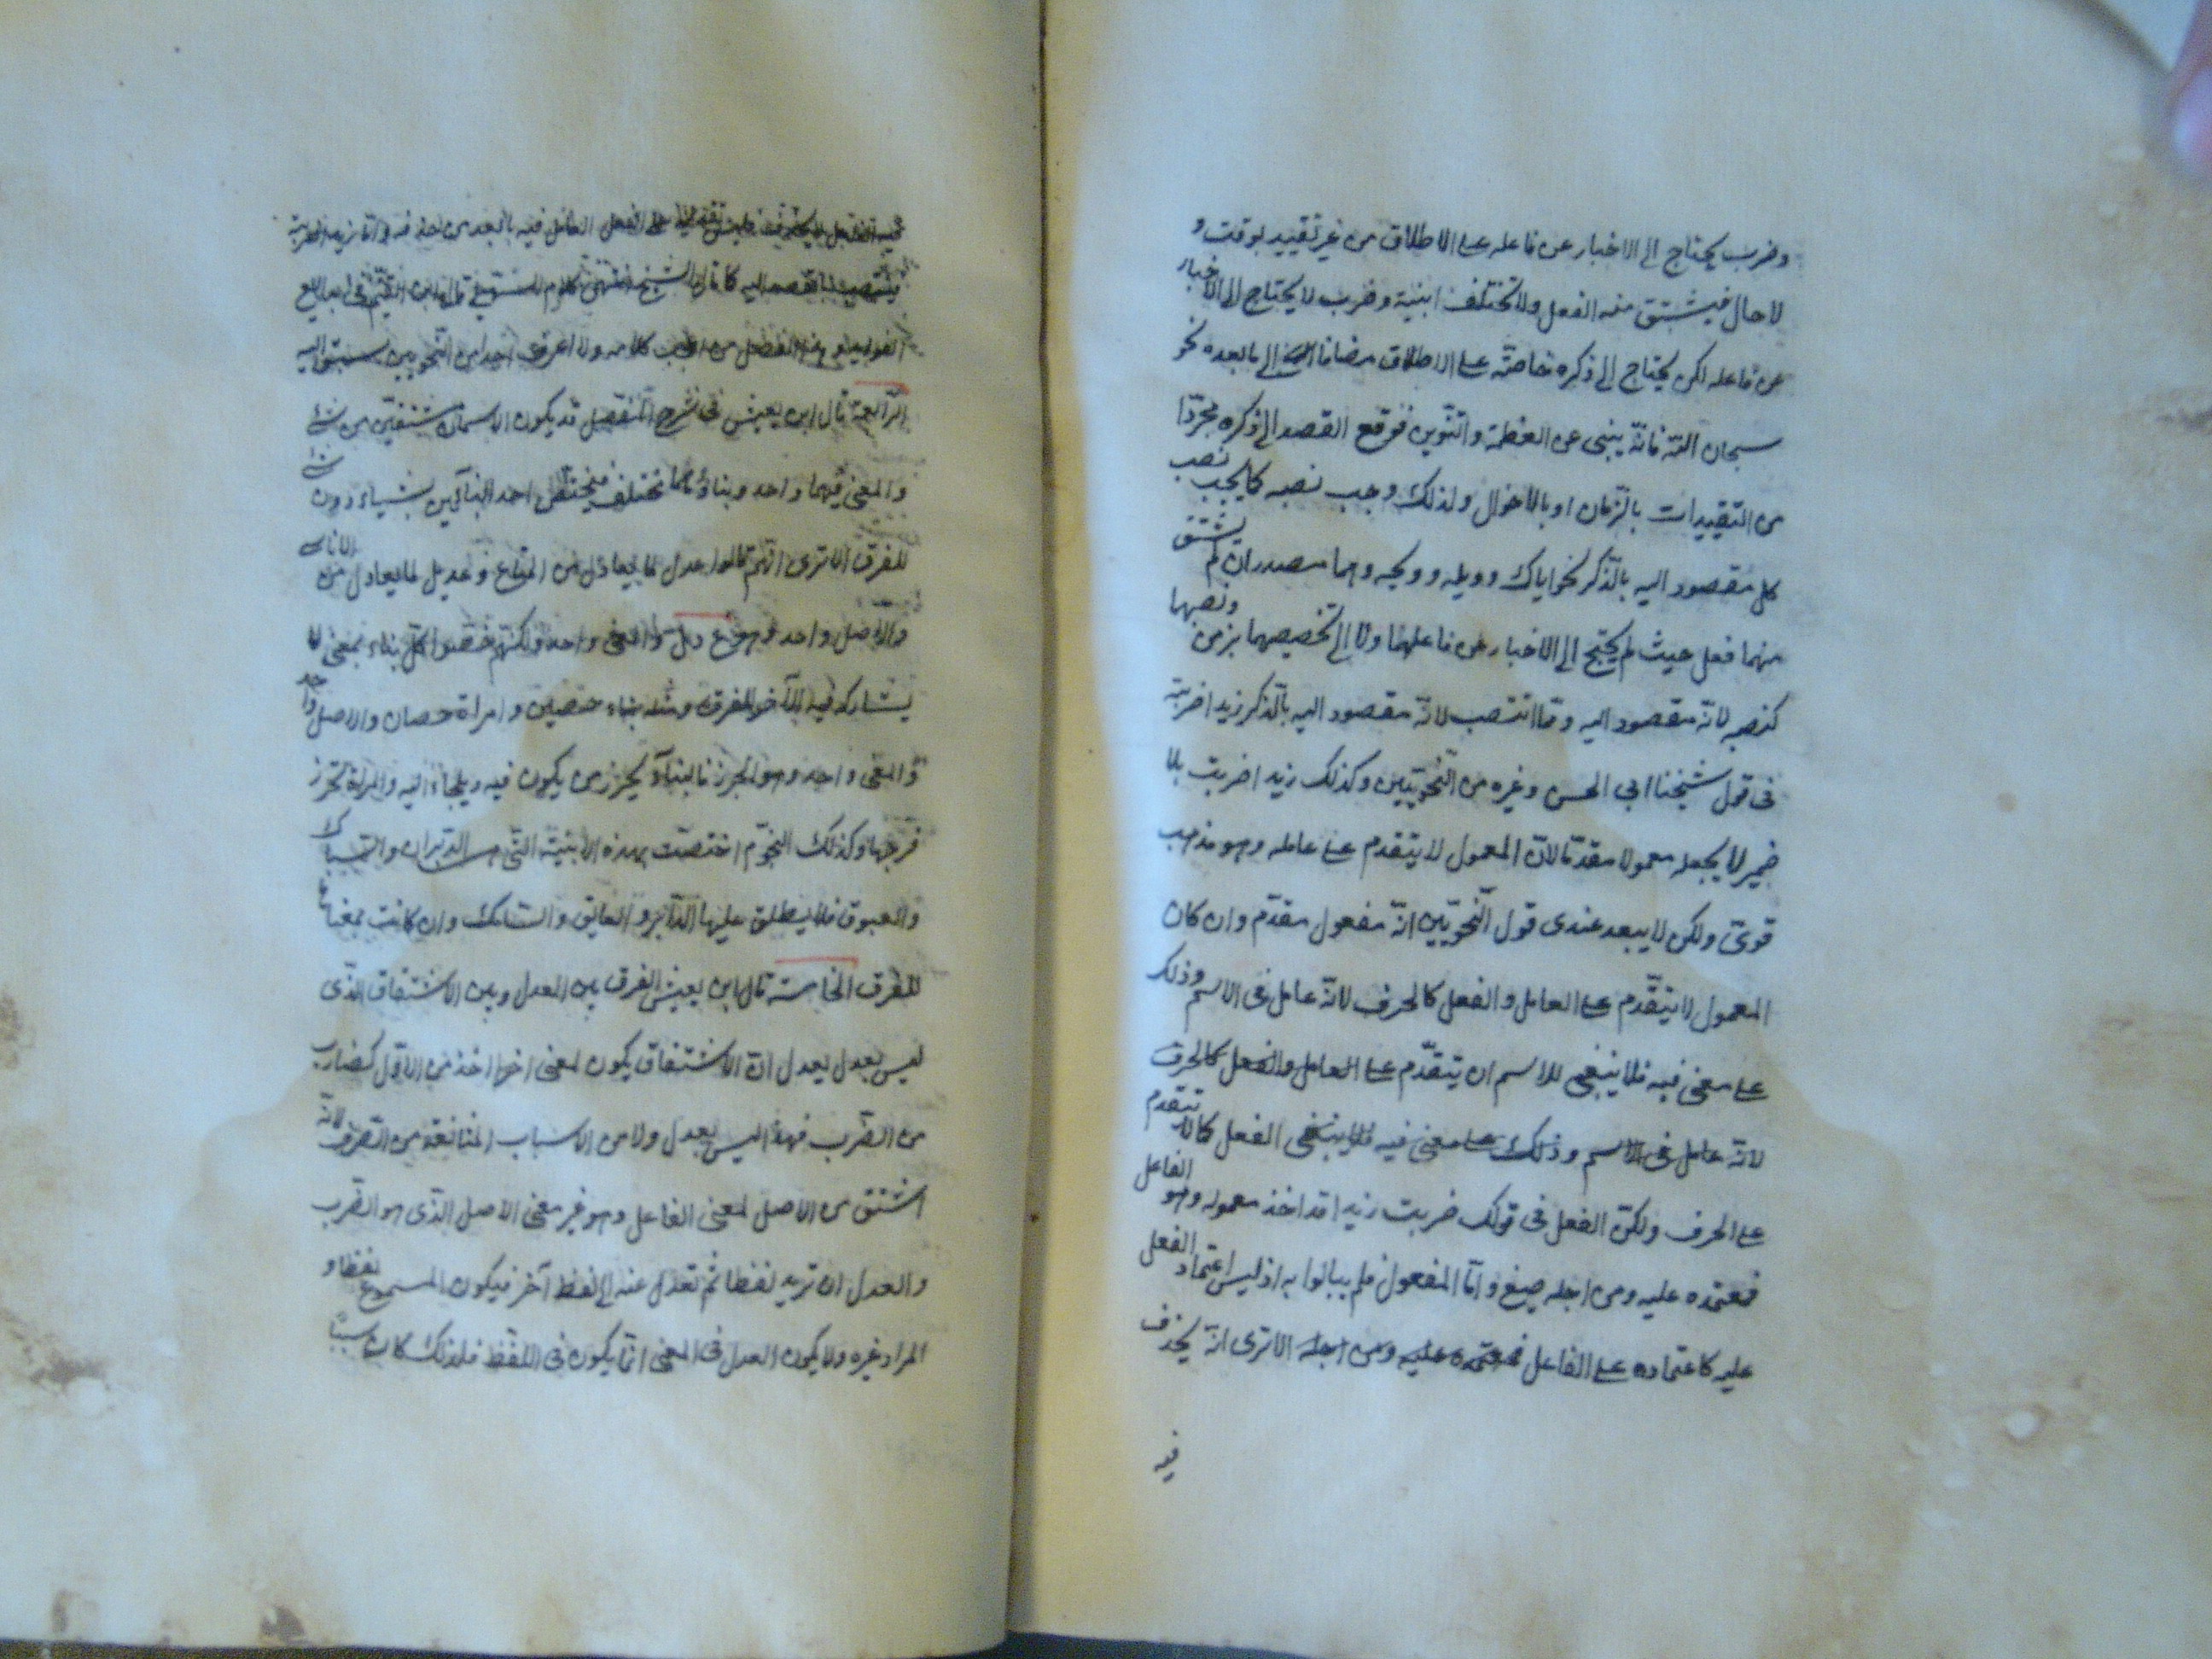 وضرب يحتاج الى الاخبار عن فاعله على الاطلاق من غير تقييد بوقت و
لا حال فيشتق منه الفعل ولا تختلف ابنية وضرب لا يحتاج الى الاخبار
عن فاعله لكن يحتاج الى ذكره خاصّة على الاطلاق مضافا الى ما بعده نحو
سبحان اللّه فانّه ينبى عن العظمة والتنوين فوقع القصد الى ذكره مجرّدا
من التقييدات بالزّمان او بالاحوال ولذلك وجب نصبه كما يجب نصب
كل مقصود اليه بالذّكر نحو اياك وويله وويحه وهما مصدران لم يشتق
منهما فعل حيث لم يحتج الى الاخبار عن فاعلهما ولا الى تخصيصهما بزمن ونصبهما
كنصبه لانّه مقصود اليه وممّا انتصب لانّه مقصود اليه بالذّكر زيدا ضربته
فى قول شيخنا ابى الحسن وغيره من النّحويّين وكذلك زيدا ضربت بلا
ضمير لا يجعله معمولا مقدّما لانّ المعمول لا يتقدم على عامله وهو مذهب
قوىّ ولكن لا يبعد عندى قول النّحويّين انّه مفعول مقدّم وان كان
المعمول لا يتقّدم على العامل والفعل كالحرف لانّه عامل فى الاسم وذلك
على معنى فيه فلا ينبغى للاسم ان يتقدّم على العامل والفعل كالحرف
لانّه عامل فى الاسم وذلك على معنى فيه فلا ينبغى الفعل كما لا يتقدم
على الحرف ولكنّ الفعل فى قولك ضربت زيدا قد اخذ معموله وهو الفاعل
فمعتمده عليه ومن اجله صيغ وامّا المفعول فلم يبالوا به اذ ليس اعتماد الفعل
عليه كاعتماده على الفاعل فمعتمده عليه ومن اجله الا ترى انّه يحذف
فيه
على الفعل العامل فيه بالبعد من حذفه وامّا زيدا ضربته
فينتصب بالقصد اليه كما قال الشيخ انتهى كلام السّهيلى قال ابن القيّم فى بدايع
الفوايد وهذا الفصل من اعجب كلامه ولا اعرف احدا من النّحويين سبقه اليه
الرّابعة قال ابن يعيش فى شرح المفصل قد يكون الاسمان مشتقين من شئ
والمعنى فيهما واحد وبناؤهما مختلف فيختص احد البنآئين بشيئ دون شئ
للفرق الا ترى انّهم قالوا عدل لما يعادل من المتاع وعديل لما يعادل من الاناس
والاصل واحد وهو ع د ل والمعنى واحد ولكنّهم خصّوا كلّ بناء بمعنى لا
يشاركه فيه الآخر للفرق ومثله بناء حصين وامراة حصان والاصل واحد
والمعنى واحد وهو الحرز فالبنآء يحرز من يكون فيه ويلجاء اليه والمراة تحرز
فرجها وكذلك النّجوم اختصّت بهذه الابنية التّى هى الدّبران والسماك
والعيوق فلا يطلق عليها الدّابر والعايق والسّامك وان كانت بمعناها
للفرق الخامسة قال ابن يعيش الفرق بين العدل وبين الاشتقاق الذّى
ليس بعدل انّ الاشتقاق يكون لمعنى اخر اخذ من الاوّل كضارب
من الضّرب فهذا ليس بعدل ولا من الاسباب المانعة من الصّرف لانّه
اشتق من الاصل لمعنى الفاعل وهو غير معنى الاصل الذّى هو الضّرب
والعدل ان تريد لفظا ثم تعدل عنه الى لفظ آخر فيكون المسموع لفظا و
المراد غيره ولا يكون العدل فى المعنى انّما يكون فى اللّفظ فلذلك كان سببا